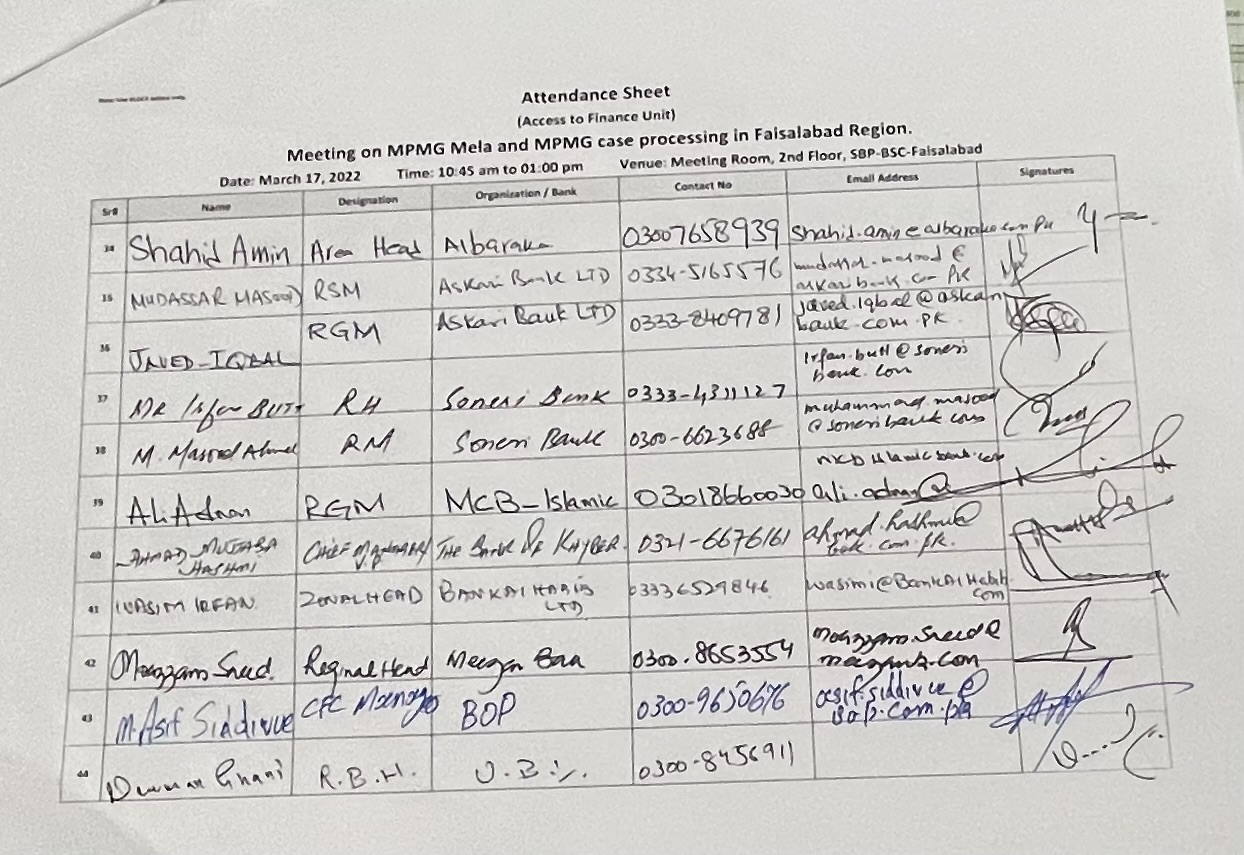 Attendance Sheet
(Access to Finance Unit)
Meeting on MPMG Mela and MPMG case processing in Faisalabad Region.
Date: March 17, 2022 Time: 10:45 am to 01:00 pm Venue: Meeting Room, 2nd Floor, SBP-BSC-Faisalabad
Sr# Name Designation Organization / Bank Contact No Email Address Signatures
34 Shahid Amin Area Head Albaraka 03007658939 shahid.amin@albaraka.com.pk
35 MUDASSAR MASOOD RSM Askari Bank LTD 0334-5165576 mudassar.masood@
askaribank.com.pk
36 JAVED IQBAL RGM Askari Bank LTD 0333-8409781 javed.iqbal@askari
bank.com.pk.
37 MR Irfan BUTT RH Soneri Bank 0333-4311127 irfan.butt@soneri
bank.com
38 M. Masood Ahmed RM Soneri Bank 0300-6623688 muhammad.masood
@soneribank.com
39 Ali Adnan RGM MCB-Islamic 03018660030 ali.adnan@
mcbislamicbank.com
40 AHMAD MUJTABA
HASHMI CHIEF MANAGER/
V.P THE BANK OF KHYBER. 0321-6676161 ahmad.hashmi@
bok.com.pk.
41 WASIM IRFAN ZONAL HEAD BANK AL HABIB
LTD 03336529846 wasimi@BankAlHabib.
com
42 Moazzam Saeed Reginal Head Meezan Ban 0300-8653554 moazzam.saeed@
43 M. Asif Siddique CFC Manager BOP 0300-9650676 asif.siddique@
bop.com.pk
44 Ghani R.B.H. U.B.L. 0300-8456911